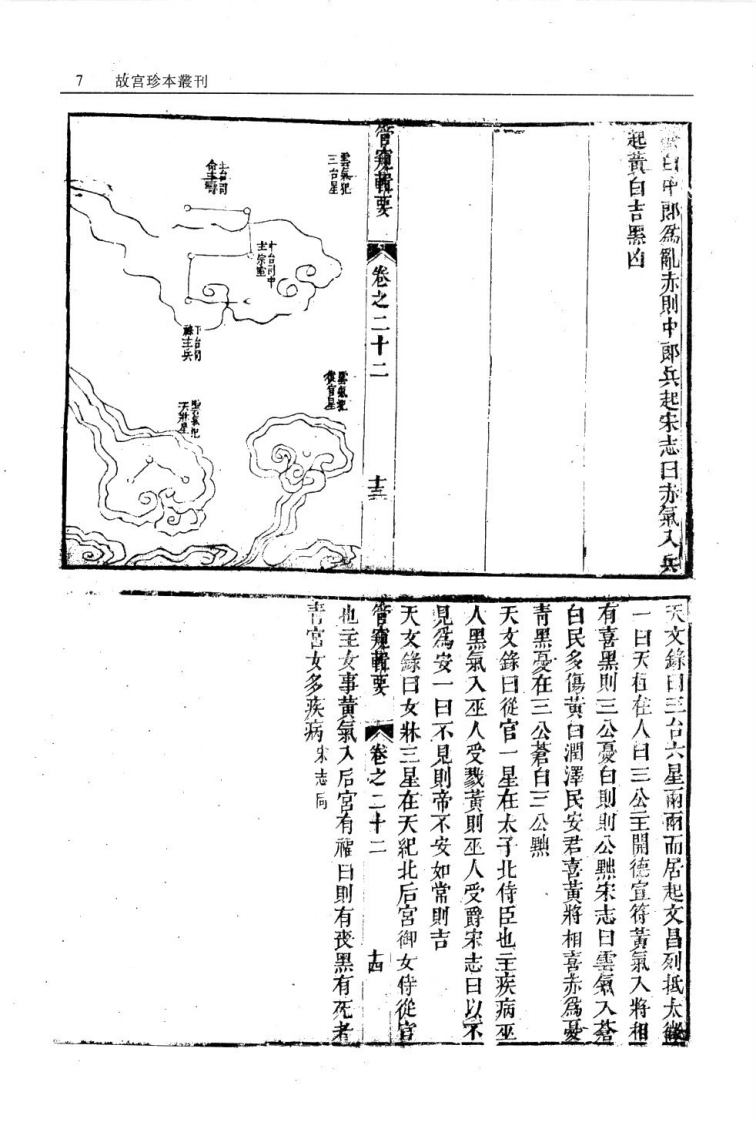 7 故宮珍本叢刊
白中郎爲亂赤則中郎兵起宋志曰赤氣入兵
起黃白吉黑凶
管窺輯要 卷之二十二 十三
雲氣犯
三台星
上台司
命主壽
中台司中
主宗室
下台司
祿主兵
雲氣犯
從官星
雲氣犯
天牀星
天文錄曰三台六星兩兩而居起文昌列抵太微
一曰天柱在人曰三公主開德宣符黃氣入將相
有喜黑則三公憂白則則公黜宋志曰雲氣入蒼
白民多傷黃白潤澤民安君喜黃將相喜赤爲憂
青黑憂在三公蒼白三公黜
天文錄曰從官一星在太子北侍臣也主疾病巫
人黑氣入巫人受戮黃則巫人受爵宋志曰以不
見爲安一曰不見則帝不安如常則吉
天文錄曰女牀三星在天紀北后宮御女侍從官
管窺輯要 卷之二十二 十四
也主女事黃氣入后宮有福白則有喪黑有死者
青宮女多疾病宋志同